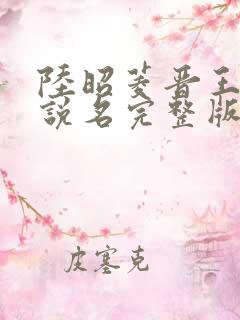 陸昭菱晋王
說名完整版
皮塞克